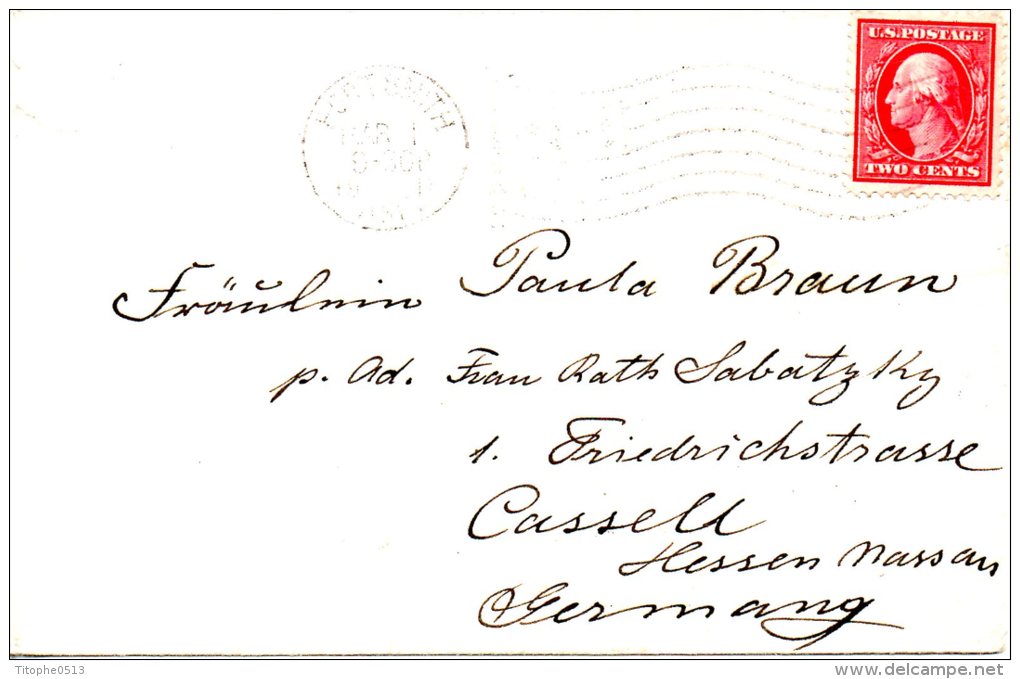 U.S. POSTAGE
TWO CENTS
FORT SMITH
MAR 1
Fräulein Paula Braun
p. Ad. Frau Rath Sabatzky
1. Friedrichstrasse
Cassell
Hessen Nassau
Germany
Titophe0513
www.delcampe.net